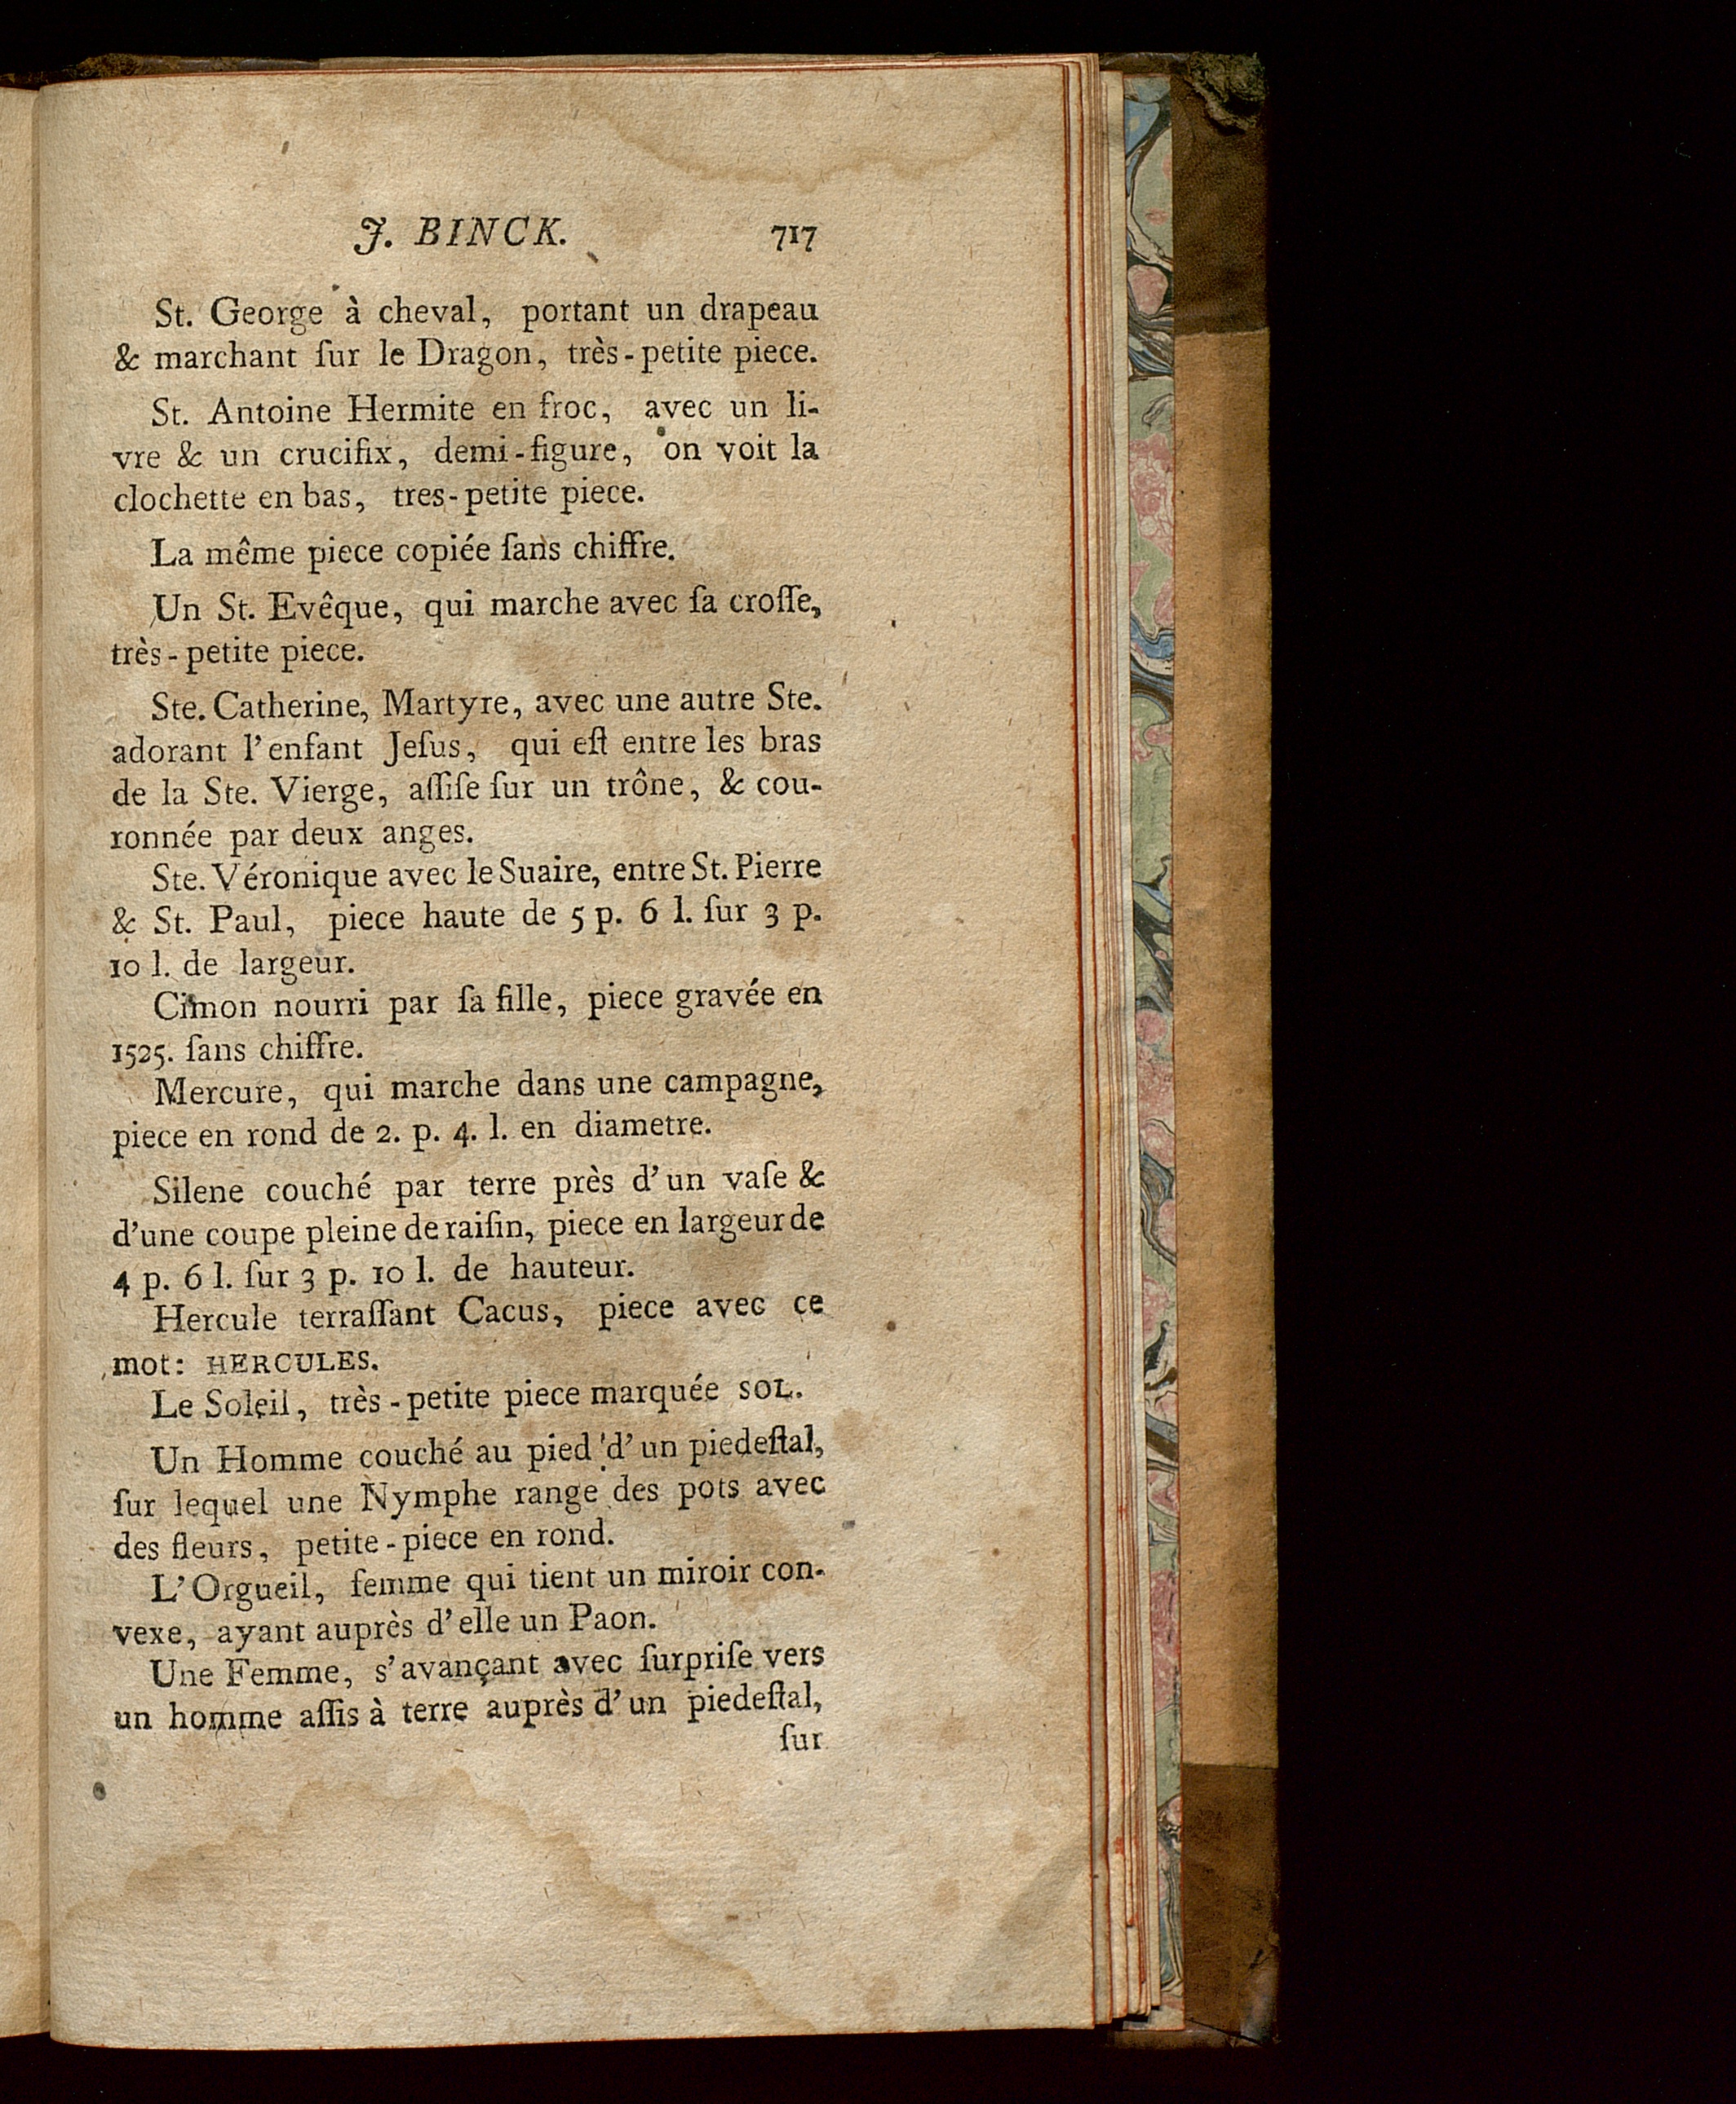 J. BINCK. 717
St. George à cheval, portant un drapeau
& marchant ſur le Dragon, très-petite piece.
St. Antoine Hermite en froc, avec un li-
vre & un crucifix, demi-figure, on voit la
clochette en bas, tres-petite piece.
La même piece copiée ſans chiffre.
Un St. Evêque, qui marche avec ſa croſſe,
très-petite piece.
Ste. Catherine, Martyre, avec une autre Ste.
adorant l'enfant Jeſus, qui eſt entre les bras
de la Ste. Vierge, aſſiſe ſur un trône, & cou-
ronnée par deux anges.
Ste. Véronique avec le Suaire, entre St. Pierre
& St. Paul, piece haute de 5 p. 6 l. ſur 3 p.
10 l. de largeur.
Cimon nourri par ſa fille, piece gravée en
1525. ſans chiffre.
Mercure, qui marche dans une campagne,
piece en rond de 2. p. 4. l. en diametre.
Silene couché par terre près d'un vaſe &
d'une coupe pleine de raiſin, piece en largeur de
4 p. 6 l. ſur 3 p. 10 l. de hauteur.
Hercule terraſſant Cacus, piece avec ce
mot: HERCULES.
Le Soleil, très-petite piece marquée SOL.
Un Homme couché au pied d'un piedeſtal,
ſur lequel une Nymphe range des pots avec
des fleurs, petite-piece en rond.
L'Orgueil, femme qui tient un miroir con-
vexe, ayant auprès d'elle un Paon.
Une Femme, s'avançant avec ſurpriſe vers
un homme aſſis à terre auprès d'un piedeſtal,
ſur